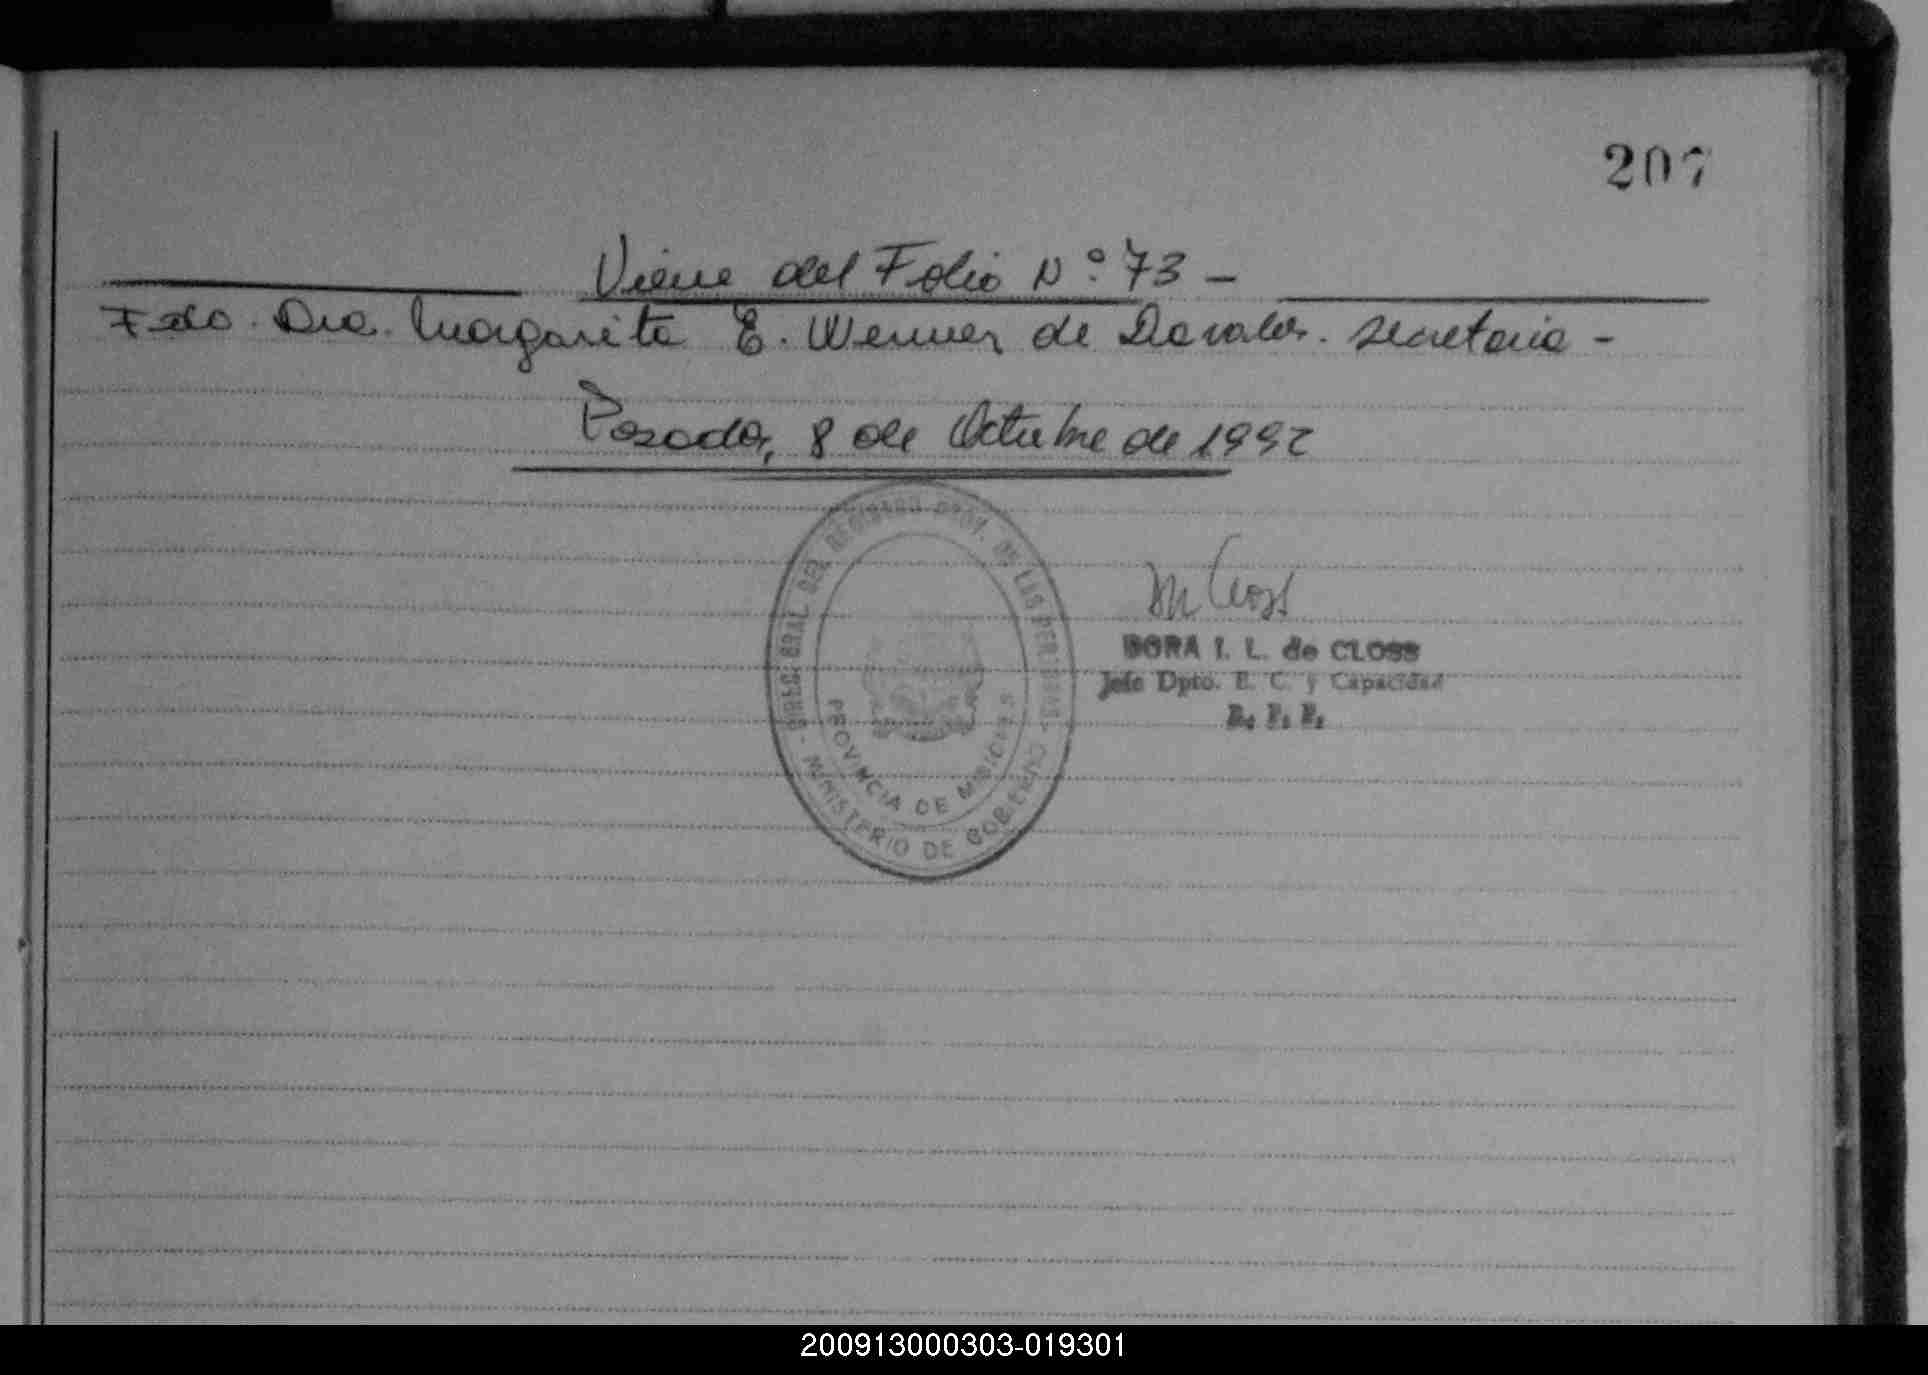 207
Viene del Folio Nº 73 -
Fdo. Dra. Margarita E. Wenner de Davalos. Secretaria -
Posadas, 8 de Octubre de 1992
DIREC. GRAL. DEL REGISTRO PROV. DE LAS PERSONAS
MINISTERIO DE GOBIERNO
PROVINCIA DE MISIONES
DORA I. L. de CLOSS
Jefe Dpto. E. C. y Capacidad
R. P. P.
200913000303-019301